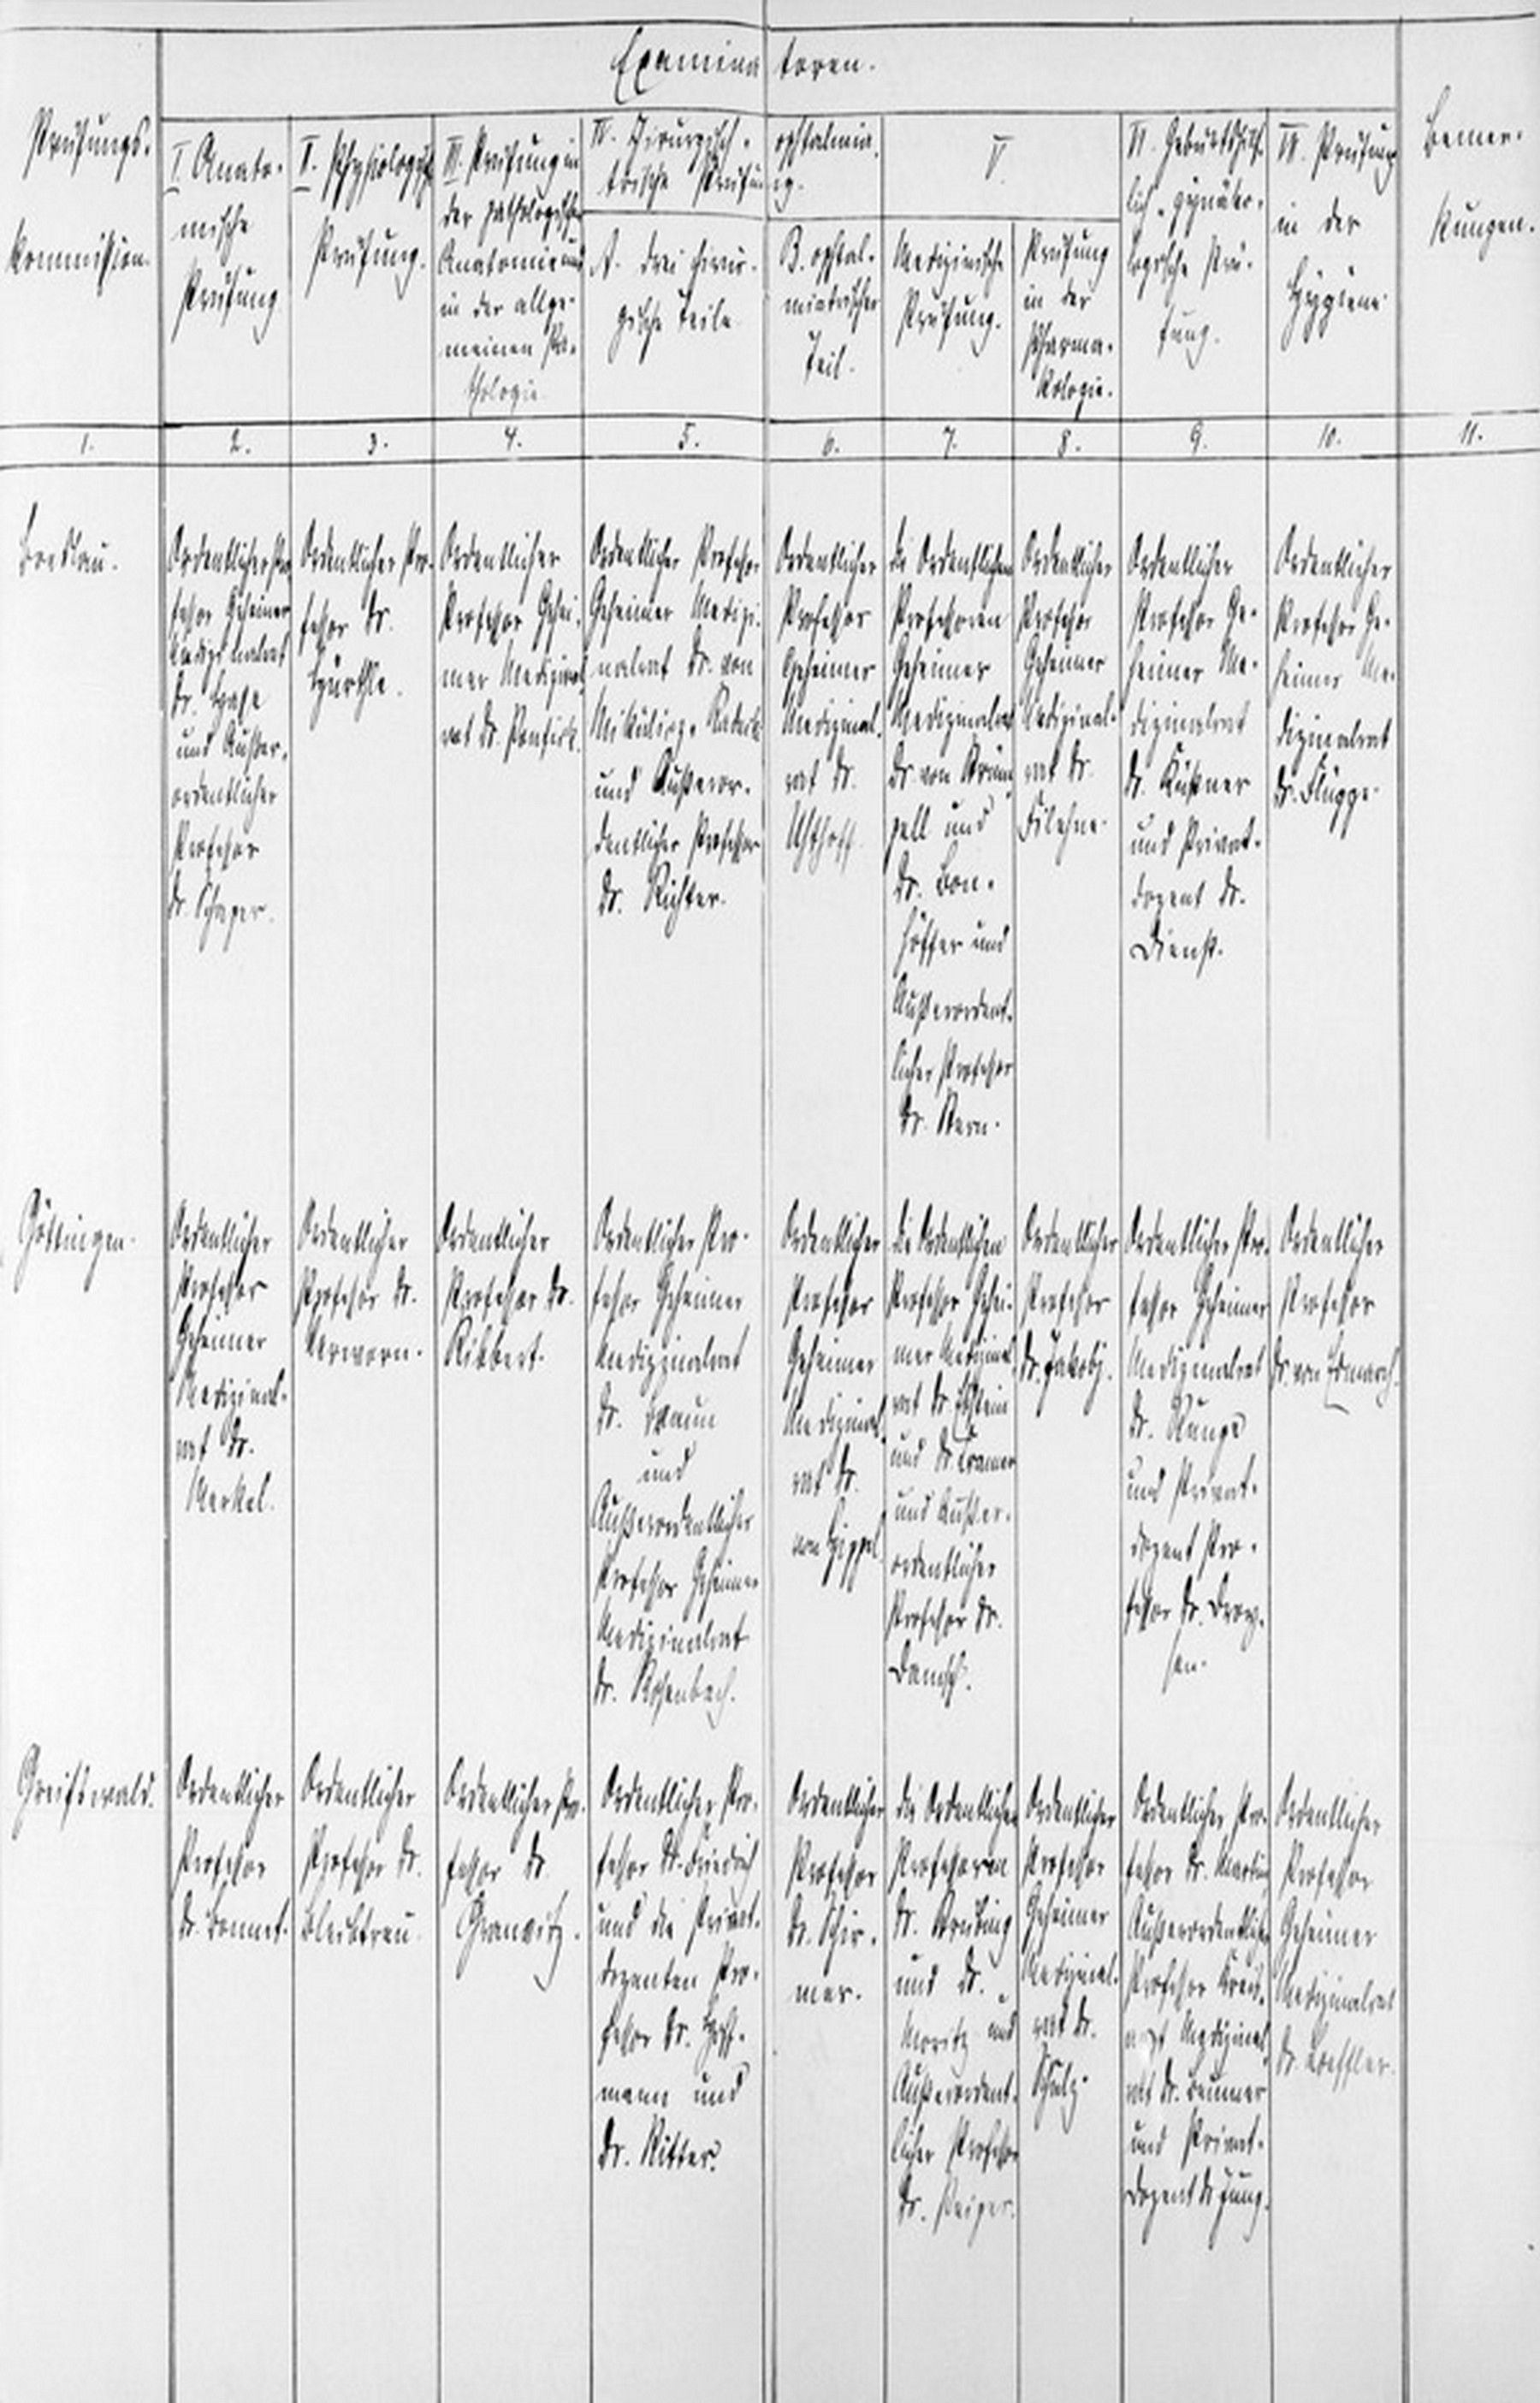 Examinatoren.
Prüfungs-
kommission.
I. Anato-
mische
Prüfung
II. Physiologische
Prüfung.
III. Prüfung in
der pathologischen
Anatomie und
in der allge-
meinen Pa-
thologie.
IV. Chirurgisch-ophtalmia-
trische Prüfung.
A. drei chirur-
gische Teile
B. ophtal-
miatrischer
Teil.
V.
Medizinische
Prüfung.
Prüfung
in der
Pharma-
kologie.
VI. Geburtshilf-
lich-gynäko-
logische Prü-
fung.
VII. Prüfung
in der
Hygiene
Bemer-
kungen.
1. 2. 3. 4. 5. 6. 7. 8. 9. 10. 11.
Breslau.
Ordentlicher Pro-
fessor Geheimer
Medizinalrat
Dr. Hasse
und Außer-
ordentlicher
Professor
Dr. Schaper.
Ordentlicher Pro-
fessor Dr.
Hürthle.
Ordentlicher
Professor Gehei-
mer Medizinal-
rat Dr. Ponfick.
Ordentlicher Professor
Geheimer Medizi-
nalrat Dr. von
Mikulicz-Radecki
und Außeror-
dentlicher Professor
Dr. Richter.
Ordentlicher
Professor
Geheimer
Medizinal-
rat Dr.
Uhthoff.
die Ordentlichen
Professoren
Geheimer
Medizinalrat
Dr. von Strüm-
pell und
Dr. Bon-
höffer und
Außerordent-
licher Professor
Dr. Stern.
Ordentlicher
Professor
Geheimer
Medizinal-
rat Dr.
Filehne.
Ordentlicher
Professor Ge-
heimer Me-
dizinalrat
Dr. Küstner
und Privat-
dozent Dr.
Dienst.
Ordentlicher
Professor Ge-
heimer Me-
dizinalrat
Dr. Flügge.
Göttingen.
Ordentlicher
Professor
Geheimer
Medizinal-
rat Dr.
Merkel.
Ordentlicher
Professor Dr.
Verworn.
Ordentlicher
Professor Dr.
Ribbert.
Ordentlicher Pro-
fessor Geheimer
Medizinalrat
Dr. Braun
und
Außerordentlicher
Professor Geheimer
Medizinalrat
Dr. Rosenbach.
Ordentlicher
Professor
Geheimer
Medizinal-
rat Dr.
von Hippel
die Ordentlichen
Professor Gehei-
mer Medizinal-
rat Dr. Ebstein
und Dr. Cramer
und Außer-
ordentlicher
Professor Dr.
Damsch.
Ordentlicher
Professor
Dr. Jakobj.
Ordentlicher Pro-
fessor Geheimer
Medizinalrat
Dr. Runge
und Privat-
dozent Pro-
fessor Dr. Droy-
sen.
Ordentlicher
Professor
Dr. von Esmarch.
Greifswald.
Ordentlicher
Professor
Dr. Bonnet.
Ordentlicher
Professor Dr.
Bleibtreu.
Ordentlicher Pro-
fessor Dr.
Grawitz.
Ordentlicher Pro-
fessor Dr. Friedrich
und die Privat-
dozenten Pro-
fessor Dr. Hoff-
mann und
Dr. Ritter.
Ordentlicher
Professor
Dr. Schir-
mer.
die Ordentlichen
Professoren
Dr. Strübing
und Dr.
Moritz und
Außerordent-
licher Professor
Dr. Peiper.
Ordentlicher
Professor
Geheimer
Medizinal-
rat Dr.
Schulz.
Ordentlicher Pro-
fessor Dr. Martin
Außerordentlicher
Professor Kreis-
arzt Medizinal-
rat Dr. Beumer
und Privat-
dozent Dr. Jung.
Ordentlicher
Professor
Geheimer
Medizinalrat
Dr. Loeffler.